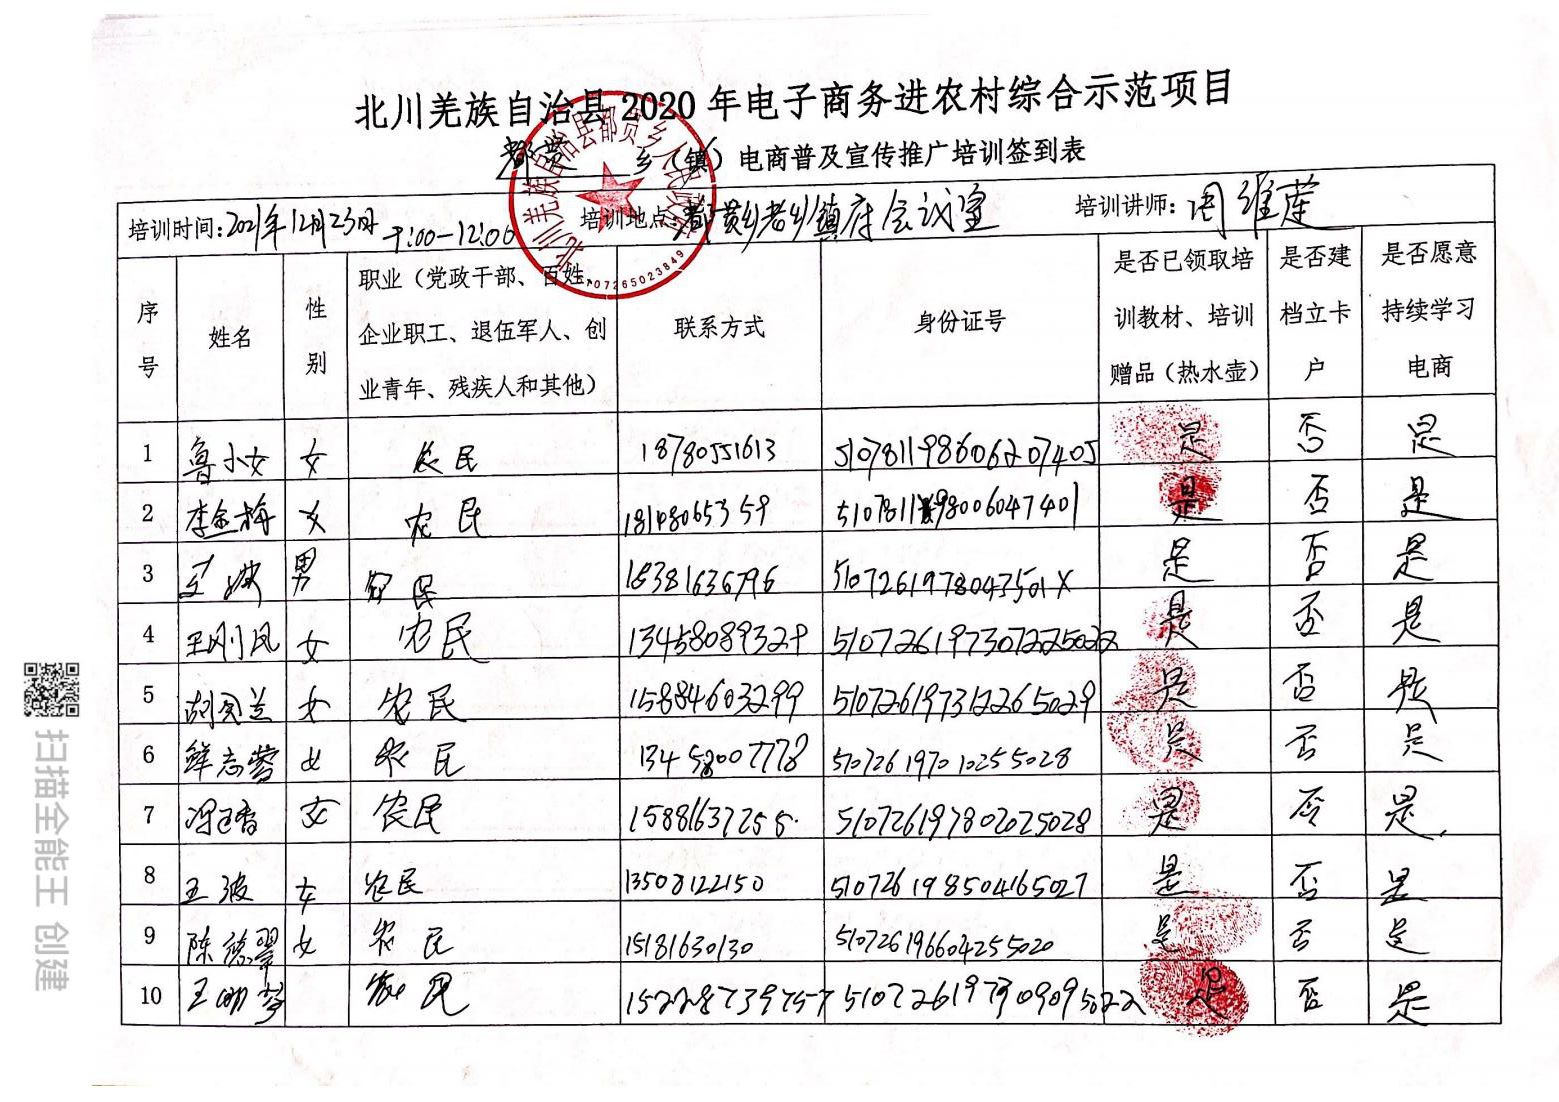 北川羌族自治县 2020 年电子商务进农村综合示范项目
都贯 乡（镇）电商普及宣传推广培训签到表
培训时间:2021年12月23日 9:00-12:00 培训地点: 会议室 培训讲师:周维莲
序号 姓名 性别 职业（党政干部、百姓、企业职工、退伍军人、创业青年、残疾人和其他） 联系方式 身份证号 是否已领取培训教材、培训赠品（热水壶） 是否建档立卡户 是否愿意持续学习电商
1 鲁小女 女 农民 18780551613 510781198606207405 是 否 是
2 李金梅 女 农民 18148065359 510781198006047401 是 否 是
3 男 农民 18381636796 是 否 是
4 王刚凤 女 农民 13458089329 510726197307225022 是 否 是
5 女 农民 15884603299 510726197312265029 是 否 是
6 鲜志蓉 女 农民 13458007778 510726197010255028 是 否 是
7 冯玉香 女 农民 15881637255 510726197802025028 是 否 是
8 王波 女 农民 13508122150 510726198504165027 是 否 是
9 陈德翠 女 农民 15181630130 510726196604255020 是 否 是
10 农民 15228739757 510726197909095022 是 否 是
北川羌族自治县都贯乡人民政府
5107265023849
扫描全能王 创建